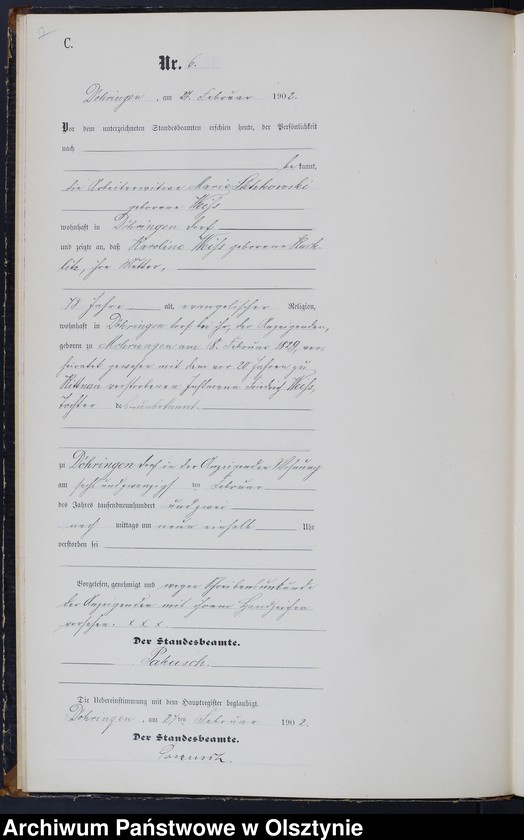 C.
Nr. 6.
Döhringen, am 27. Februar 1902.
Vor dem unterzeichneten Standesbeamten erschien heute, der Persönlichkeit
nach
be kannt,
die Arbeiterwitwe Marie
geborene Weiß
wohnhaft in Döhringen dorf
und zeigte an, daß Karoline Weiß geborene
ihre Mutter,
73 Jahre alt, evangelischer Religion,
wohnhaft in Döhringen dorf bei ihr, der Anzeigenden,
geboren zu Mohrungen am 18. Februar 1829, ver-
heiratet gewesen mit dem vor 20 Jahren zu
verstorbenen Friedrich Weiß,
Tochter des unbekannt.
zu Döhringen dorf in der Anzeigenden Wohnung
am sechsundzwanzigsten Februar
des Jahres tausendneunhundert und zwei
nach mittags um neun einhalb Uhr
verstorben sei
Vorgelesen, genehmigt und wegen Schreibensunkunde
der Anzeigenden mit ihrem Handzeichen
versehen. x x x
Der Standesbeamte.
Die Uebereinstimmung mit dem Hauptregister beglaubigt.
Döhringen, am 27ten Februar 1902.
Der Standesbeamte.
Archiwum Państwowe w Olsztynie